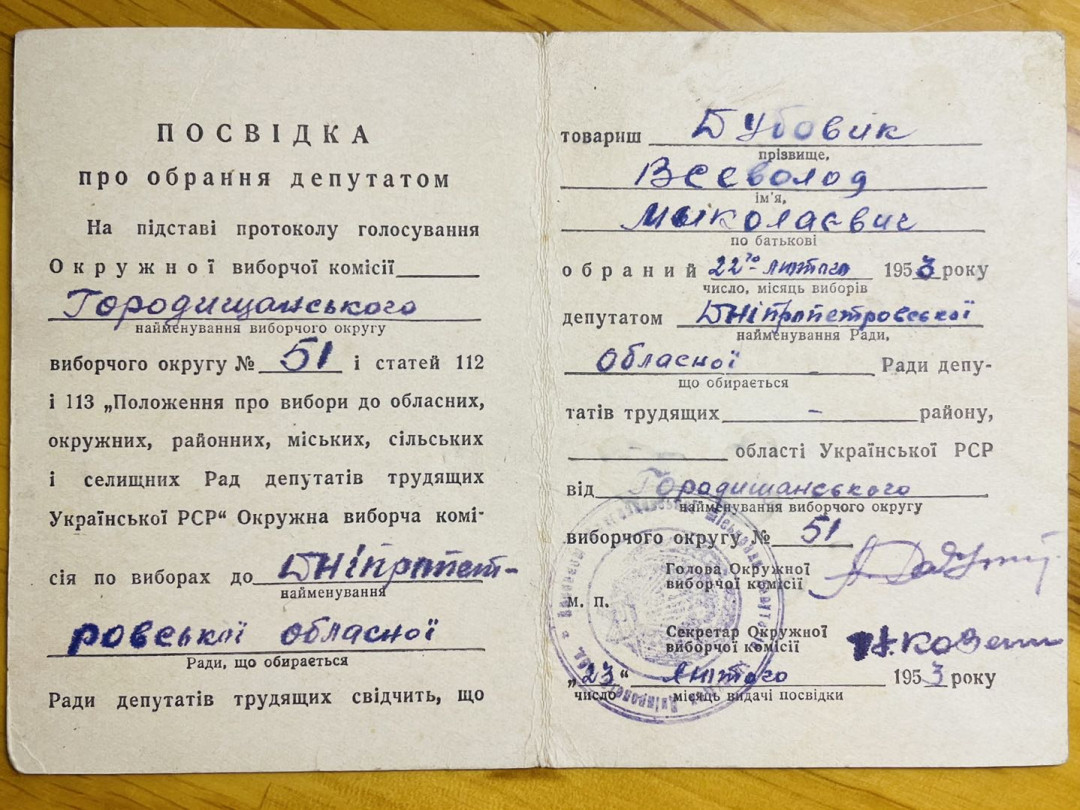 ПОСВІДКА
про обрання депутатом
На підставі протоколу голосування
Окружної виборчої комісії
Городищанського
найменування виборчого округу
виборчого округу № 51 і статей 112
і 113 „Положення про вибори до обласних,
окружних, районних, міських, сільських
і селищних Рад депутатів трудящих
Української РСР“ Окружна виборча комі-
сія по виборах до Дніпропет-
найменування
ровської обласної
Ради, що обирається
Ради депутатів трудящих свідчить, що
товариш Бубовик
прізвище,
Всеволод
ім'я,
Миколаєвич
по батькові
обраний 22го лютого 1953 року
число, місяць виборів
депутатом Дніпропетровської
найменування Ради,
Обласної - Ради депу-
що обирається
татів трудящих - району,
області Української РСР
від Городищанського
найменування виборчого округу
виборчого округу № 51
Голова Окружної
виборчої комісії
М. П.
Секретар Окружної
виборчої комісії
„23“ лютого 1953 року
число місяць видачі посвідки